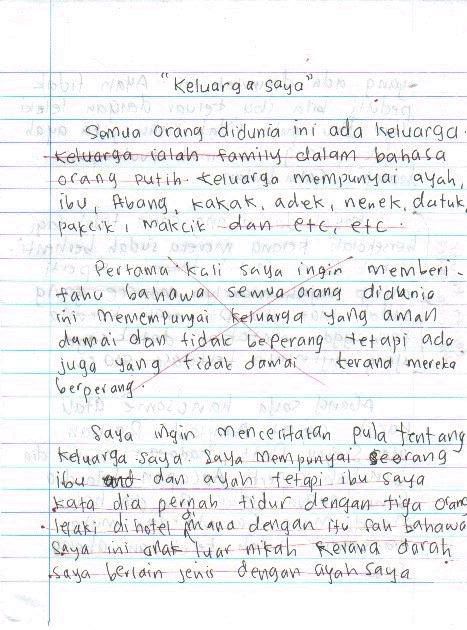 "Keluarga saya"
Semua orang didunia ini ada keluarga.
Keluarga ialah family dalam bahasa
orang putih. Keluarga mempunyai ayah,
ibu, Abang, kakak, adek, nenek, datuk,
pakcik, makcik dan etc, etc.
Pertama kali saya ingin memberi-
tahu bahawa semua orang didunia
ini memempunyai keluarga yang aman
damai dan tidak beperang tetapi ada
juga yang tidak damai kerana mereka
berperang.
Saya ingin menceritakan pula tentang
keluarga saya. Saya mempunyai seorang
ibu dan ayah tetapi ibu saya
kata dia pernah tidur dengan tiga orang
lelaki di hotel dimana dengan itu sah bahawa
saya ini anak luar nikah kerana darah
saya berlain jenis dengan ayah saya